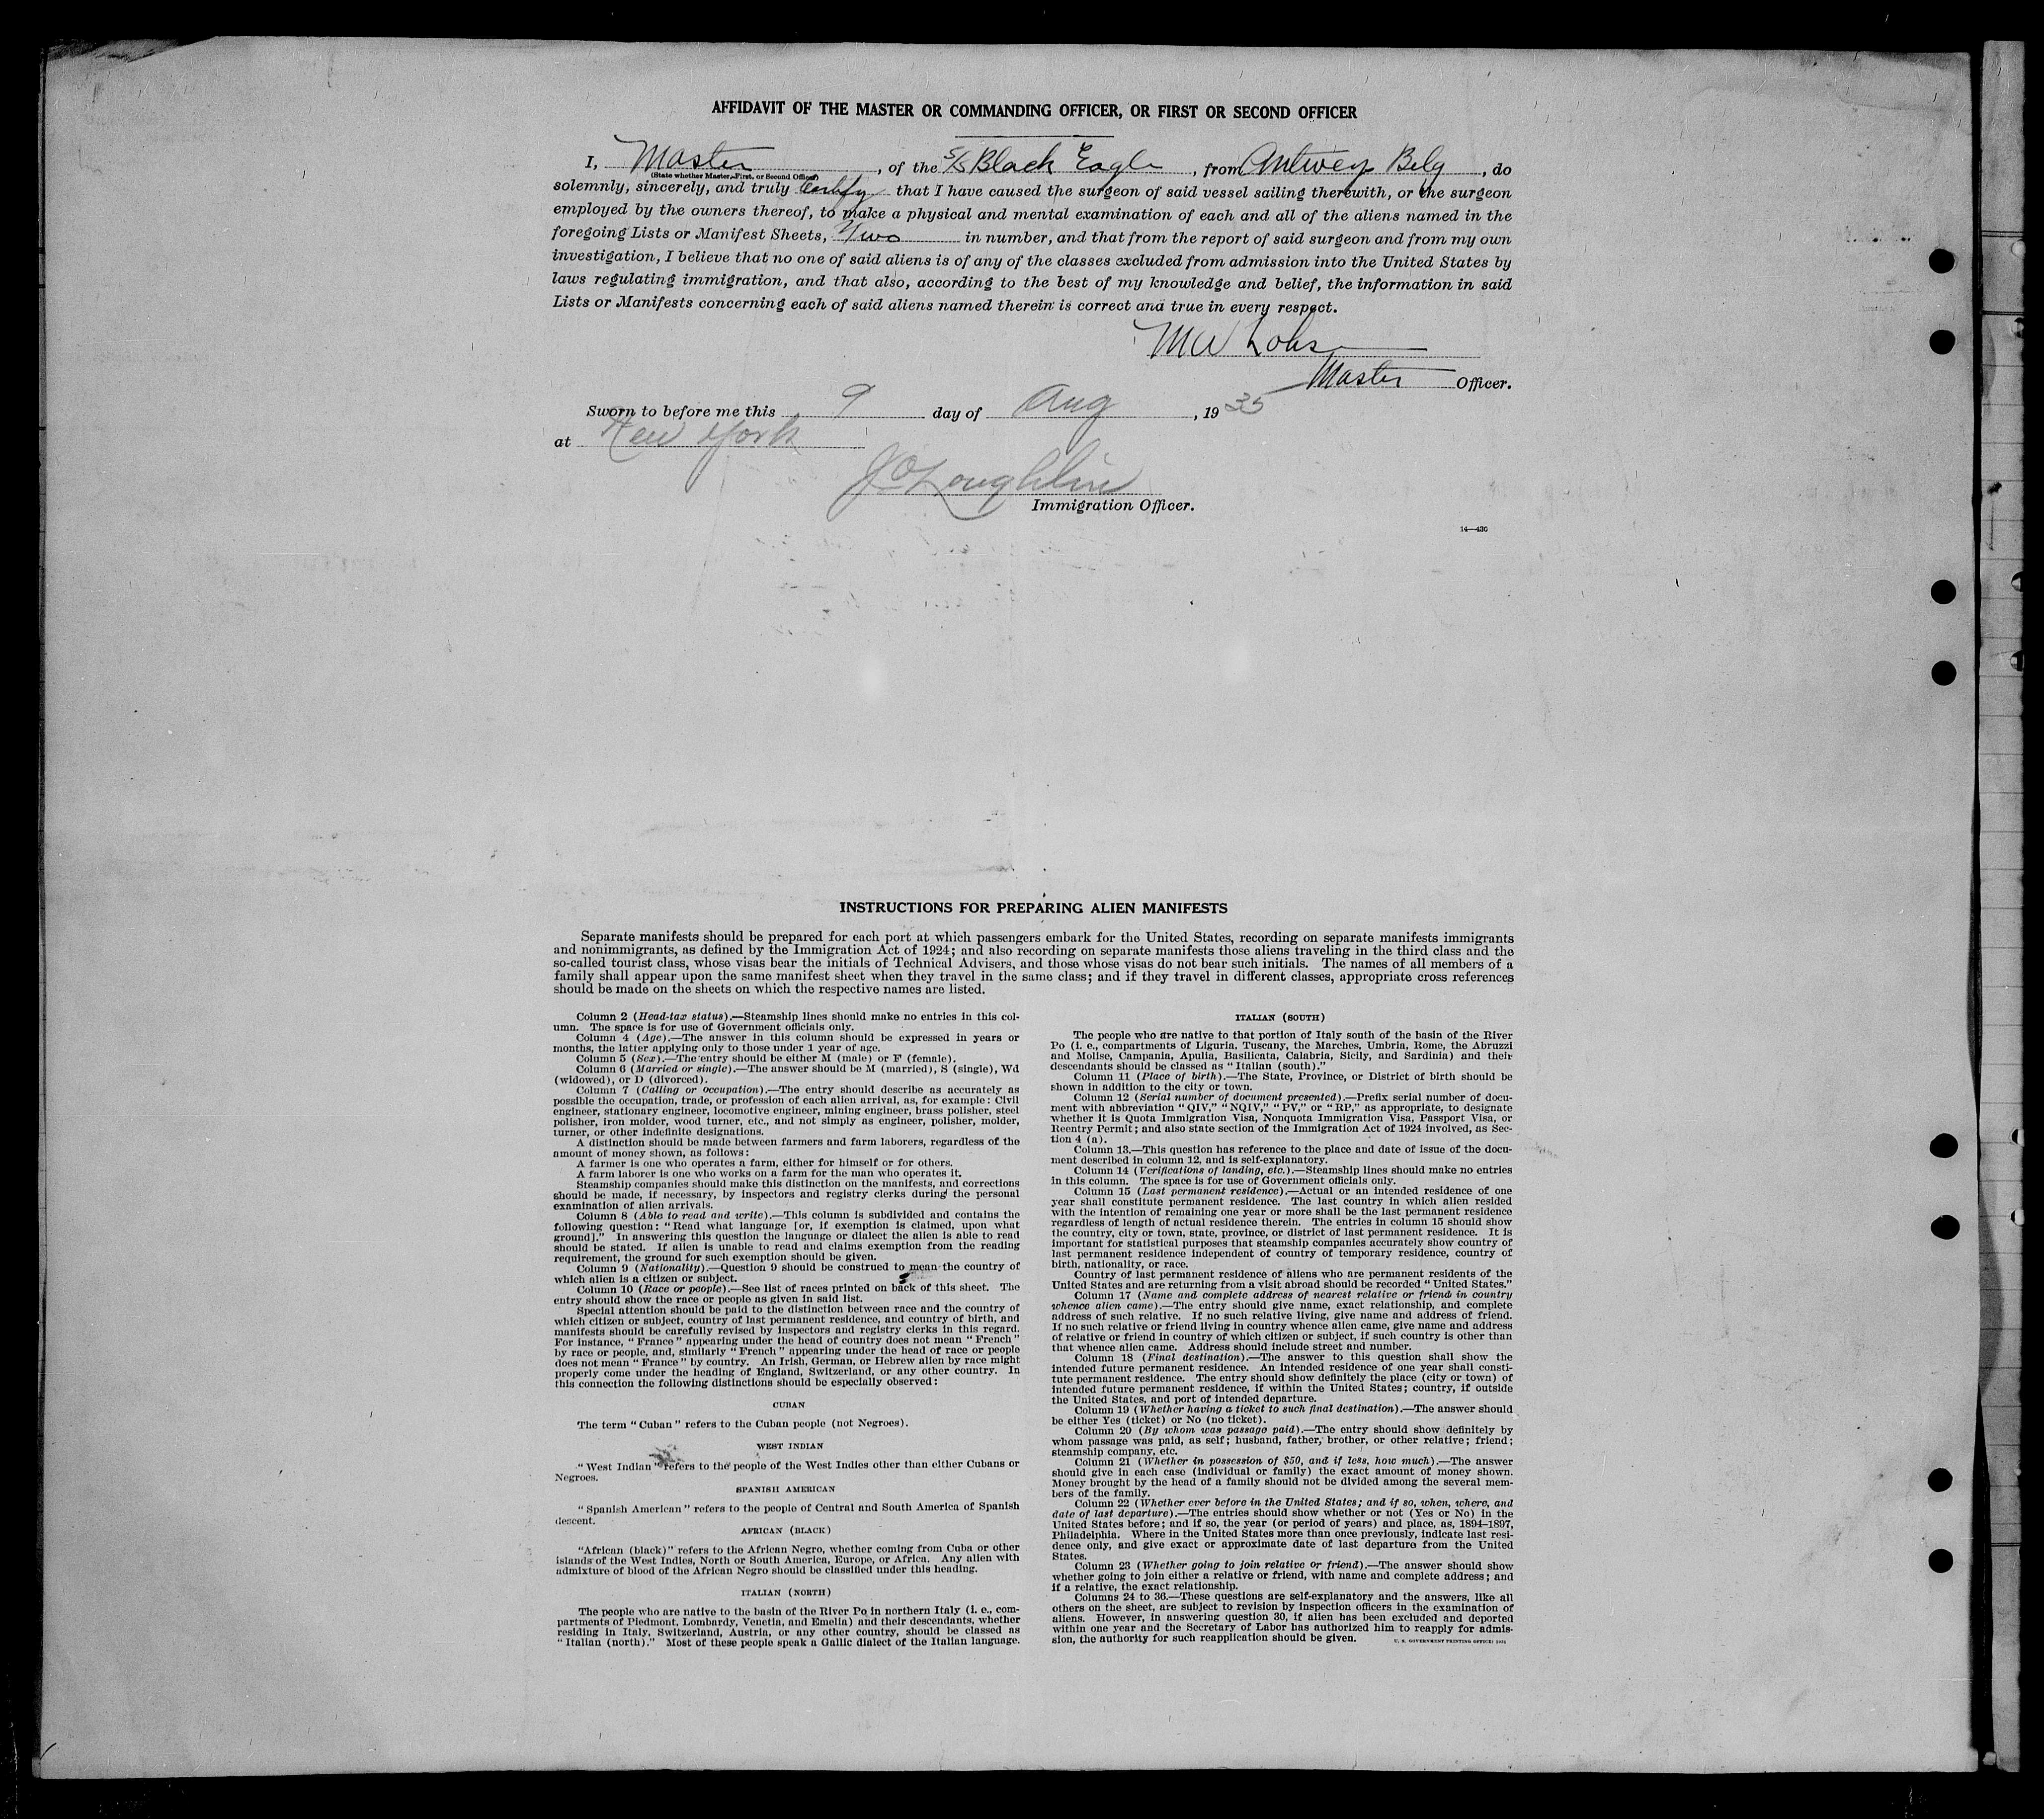 AFFIDAVIT OF THE MASTER OR COMMANDING OFFICER, OR FIRST OR SECOND OFFICER
I, Master, of the S/S Black Eagle, from Antwerp Belg, do
(State whether Master, First, or Second Officer)
solemnly, sincerely, and truly Certify that I have caused the surgeon of said vessel sailing therewith, or the surgeon
employed by the owners thereof, to make a physical and mental examination of each and all of the aliens named in the
foregoing Lists or Manifest Sheets, Two in number, and that from the report of said surgeon and from my own
investigation, I believe that no one of said aliens is of any of the classes excluded from admission into the United States by
laws regulating immigration, and that also, according to the best of my knowledge and belief, the information in said
Lists or Manifests concerning each of said aliens named therein is correct and true in every respect.
Master Officer.
Sworn to before me this 9 day of Aug, 1935
at New York
J O'Loughlin
Immigration Officer.
14—430
INSTRUCTIONS FOR PREPARING ALIEN MANIFESTS
Separate manifests should be prepared for each port at which passengers embark for the United States, recording on separate manifests immigrants
and nonimmigrants, as defined by the Immigration Act of 1924; and also recording on separate manifests those aliens traveling in the third class and the
so-called tourist class, whose visas bear the initials of Technical Advisers, and those whose visas do not bear such initials. The names of all members of a
family shall appear upon the same manifest sheet when they travel in the same class; and if they travel in different classes, appropriate cross references
should be made on the sheets on which the respective names are listed.
Column 2 (Head-tax status).—Steamship lines should make no entries in this col-
umn. The space is for use of Government officials only.
Column 4 (Age).—The answer in this column should be expressed in years or
months, the latter applying only to those under 1 year of age.
Column 5 (Sex).—The entry should be either M (male) or F (female).
Column 6 (Married or single).—The answer should be M (married), S (single), Wd
(widowed), or D (divorced).
Column 7 (Calling or occupation).—The entry should describe as accurately as
possible the occupation, trade, or profession of each alien arrival, as, for example: Civil
engineer, stationary engineer, locomotive engineer, mining engineer, brass polisher, steel
polisher, iron molder, wood turner, etc., and not simply as engineer, polisher, molder,
turner, or other indefinite designations.
A distinction should be made between farmers and farm laborers, regardless of the
amount of money shown, as follows:
A farmer is one who operates a farm, either for himself or for others.
A farm laborer is one who works on a farm for the man who operates it.
Steamship companies should make this distinction on the manifests, and corrections
should be made, if necessary, by inspectors and registry clerks during the personal
examination of alien arrivals.
Column 8 (Able to read and write).—This column is subdivided and contains the
following question: "Read what language [or, if exemption is claimed, upon what
ground]." In answering this question the language or dialect the alien is able to read
should be stated. If alien is unable to read and claims exemption from the reading
requirement, the ground for such exemption should be given.
Column 9 (Nationality).—Question 9 should be construed to mean the country of
which alien is a citizen or subject.
Column 10 (Race or people).—See list of races printed on back of this sheet. The
entry should show the race or people as given in said list.
Special attention should be paid to the distinction between race and the country of
which citizen or subject, country of last permanent residence, and country of birth, and
manifests should be carefully revised by inspectors and registry clerks in this regard.
For instance, "France" appearing under the head of country does not mean "French"
by race or people, and, similarly "French" appearing under the head of race or people
does not mean "France" by country. An Irish, German, or Hebrew alien by race might
properly come under the heading of England, Switzerland, or any other country. In
this connection the following distinctions should be especially observed:
CUBAN
The term "Cuban" refers to the Cuban people (not Negroes).
WEST INDIAN
"West Indian" refers to the people of the West Indies other than either Cubans or
Negroes.
SPANISH AMERICAN
"Spanish American" refers to the people of Central and South America of Spanish
descent.
AFRICAN (BLACK)
"African (black)" refers to the African Negro, whether coming from Cuba or other
islands of the West Indies, North or South America, Europe, or Africa. Any alien with
admixture of blood of the African Negro should be classified under this heading.
ITALIAN (NORTH)
The people who are native to the basin of the River Po in northern Italy (i. e., com-
partments of Piedmont, Lombardy, Venetia, and Emelia) and their descendants, whether
residing in Italy, Switzerland, Austria, or any other country, should be classed as
"Italian (north)." Most of these people speak a Gallic dialect of the Italian language.
ITALIAN (SOUTH)
The people who are native to that portion of Italy south of the basin of the River
Po (i. e., compartments of Liguria, Tuscany, the Marches, Umbria, Rome, the Abruzzi
and Molise, Campania, Apulia, Basilicata, Calabria, Sicily, and Sardinia) and their
descendants should be classed as "Italian (south)."
Column 11 (Place of birth).—The State, Province, or District of birth should be
shown in addition to the city or town.
Column 12 (Serial number of document presented).—Prefix serial number of docu-
ment with abbreviation "QIV," "NQIV," "PV," or "RP," as appropriate, to designate
whether it is Quota Immigration Visa, Nonquota Immigration Visa, Passport Visa, or
Reentry Permit; and also state section of the Immigration Act of 1924 involved, as Sec-
tion 4 (a).
Column 13.—This question has reference to the place and date of issue of the docu-
ment described in column 12, and is self-explanatory.
Column 14 (Verifications of landing, etc.).—Steamship lines should make no entries
in this column. The space is for use of Government officials only.
Column 15 (Last permanent residence).—Actual or an intended residence of one
year shall constitute permanent residence. The last country in which alien resided
with the intention of remaining one year or more shall be the last permanent residence
regardless of length of actual residence therein. The entries in column 15 should show
the country, city or town, state, province, or district of last permanent residence. It is
important for statistical purposes that steamship companies accurately show country of
last permanent residence independent of country of temporary residence, country of
birth, nationality, or race.
Country of last permanent residence of aliens who are permanent residents of the
United States and are returning from a visit abroad should be recorded "United States."
Column 17 (Name and complete address of nearest relative or friend in country
whence alien came).—The entry should give name, exact relationship, and complete
address of such relative. If no such relative living, give name and address of friend.
If no such relative or friend living in country whence alien came, give name and address
of relative or friend in country of which citizen or subject, if such country is other than
that whence alien came. Address should include street and number.
Column 18 (Final destination).—The answer to this question shall show the
intended future permanent residence. An intended residence of one year shall consti-
tute permanent residence. The entry should show definitely the place (city or town) of
intended future permanent residence, if within the United States; country, if outside
the United States, and port of intended departure.
Column 19 (Whether having a ticket to such final destination).—The answer should
be either Yes (ticket) or No (no ticket).
Column 20 (By whom was passage paid).—The entry should show definitely by
whom passage was paid, as self; husband, father, brother, or other relative; friend;
steamship company, etc.
Column 21 (Whether in possession of $50, and if less, how much).—The answer
should give in each case (individual or family) the exact amount of money shown.
Money brought by the head of a family should not be divided among the several mem-
bers of the family.
Column 22 (Whether ever before in the United States; and if so, when, where, and
date of last departure).—The entries should show whether or not (Yes or No) in the
United States before; and if so, the year (or period of years) and place, as, 1894–1897,
Philadelphia. Where in the United States more than once previously, indicate last resi-
dence only, and give exact or approximate date of last departure from the United
States.
Column 23 (Whether going to join relative or friend).—The answer should show
whether going to join either a relative or friend, with name and complete address; and
if a relative, the exact relationship.
Columns 24 to 36.—These questions are self-explanatory and the answers, like all
others on the sheet, are subject to revision by inspection officers in the examination of
aliens. However, in answering question 30, if alien has been excluded and deported
within one year and the Secretary of Labor has authorized him to reapply for admis-
sion, the authority for such reapplication should be given.
U. S. GOVERNMENT PRINTING OFFICE: 1931